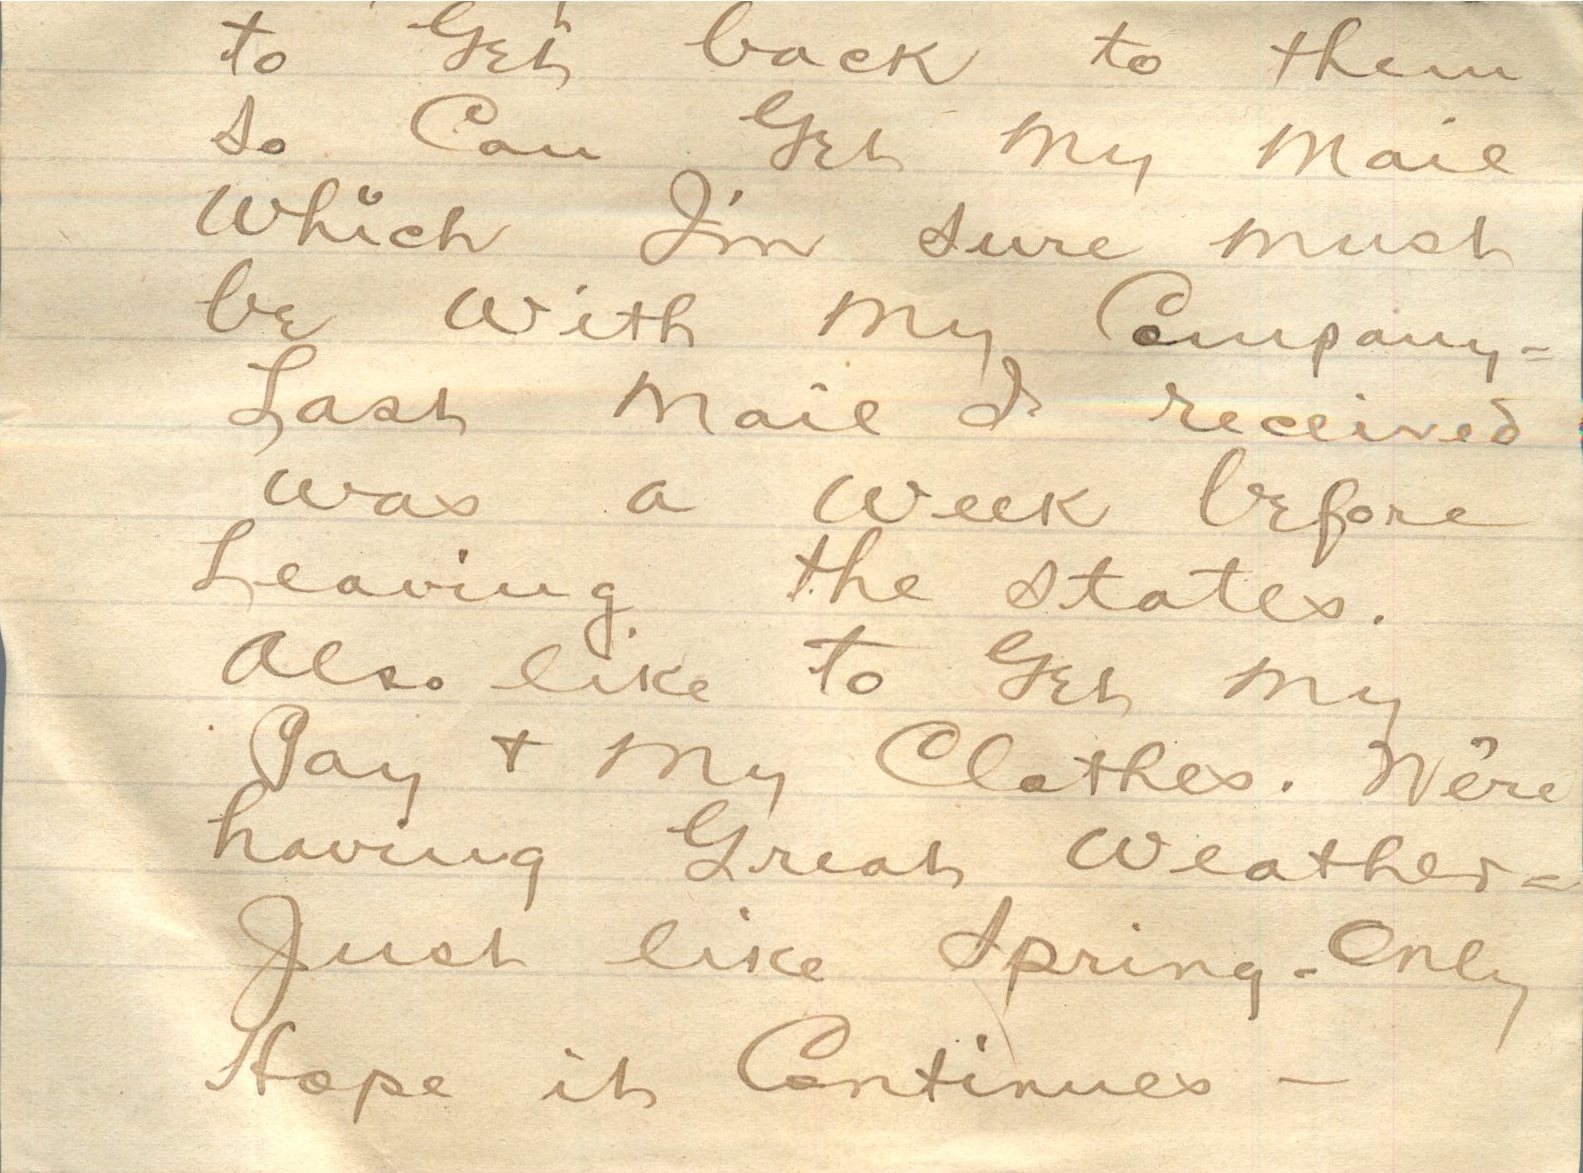 to Get back to them
So Can Get My Mail
Which I'm sure must
be With My Company -
Last Mail I received
was a Week before
Leaving the States.
Also like to Get My
Pay + My Clothes. We're
having Great Weather -
Just like Spring - Only
Hope it Continues -